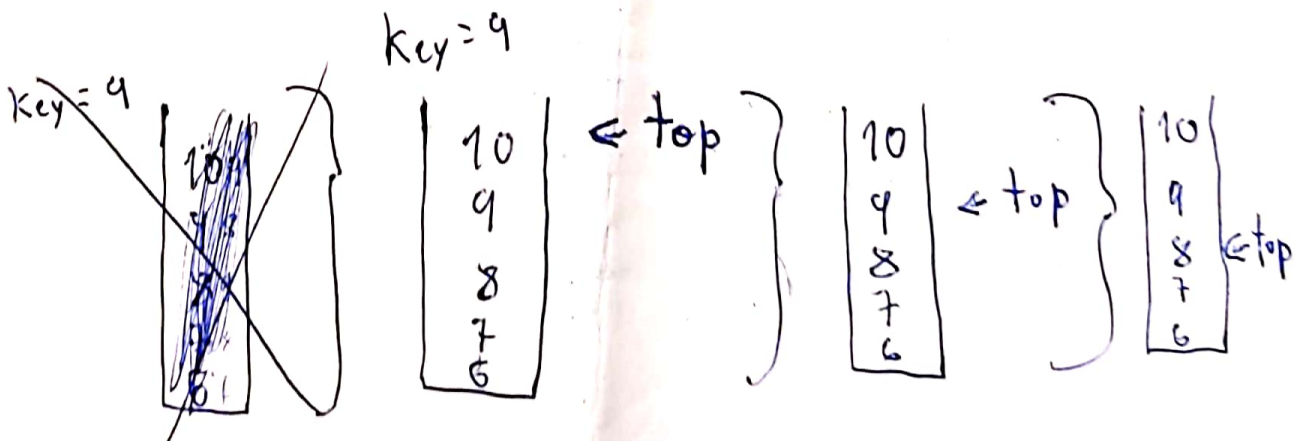 Key = 9
Key = 9
10 ← top
9
8
7
6
10
9 ← top
8
7
6
10
9
8 ← top
7
6